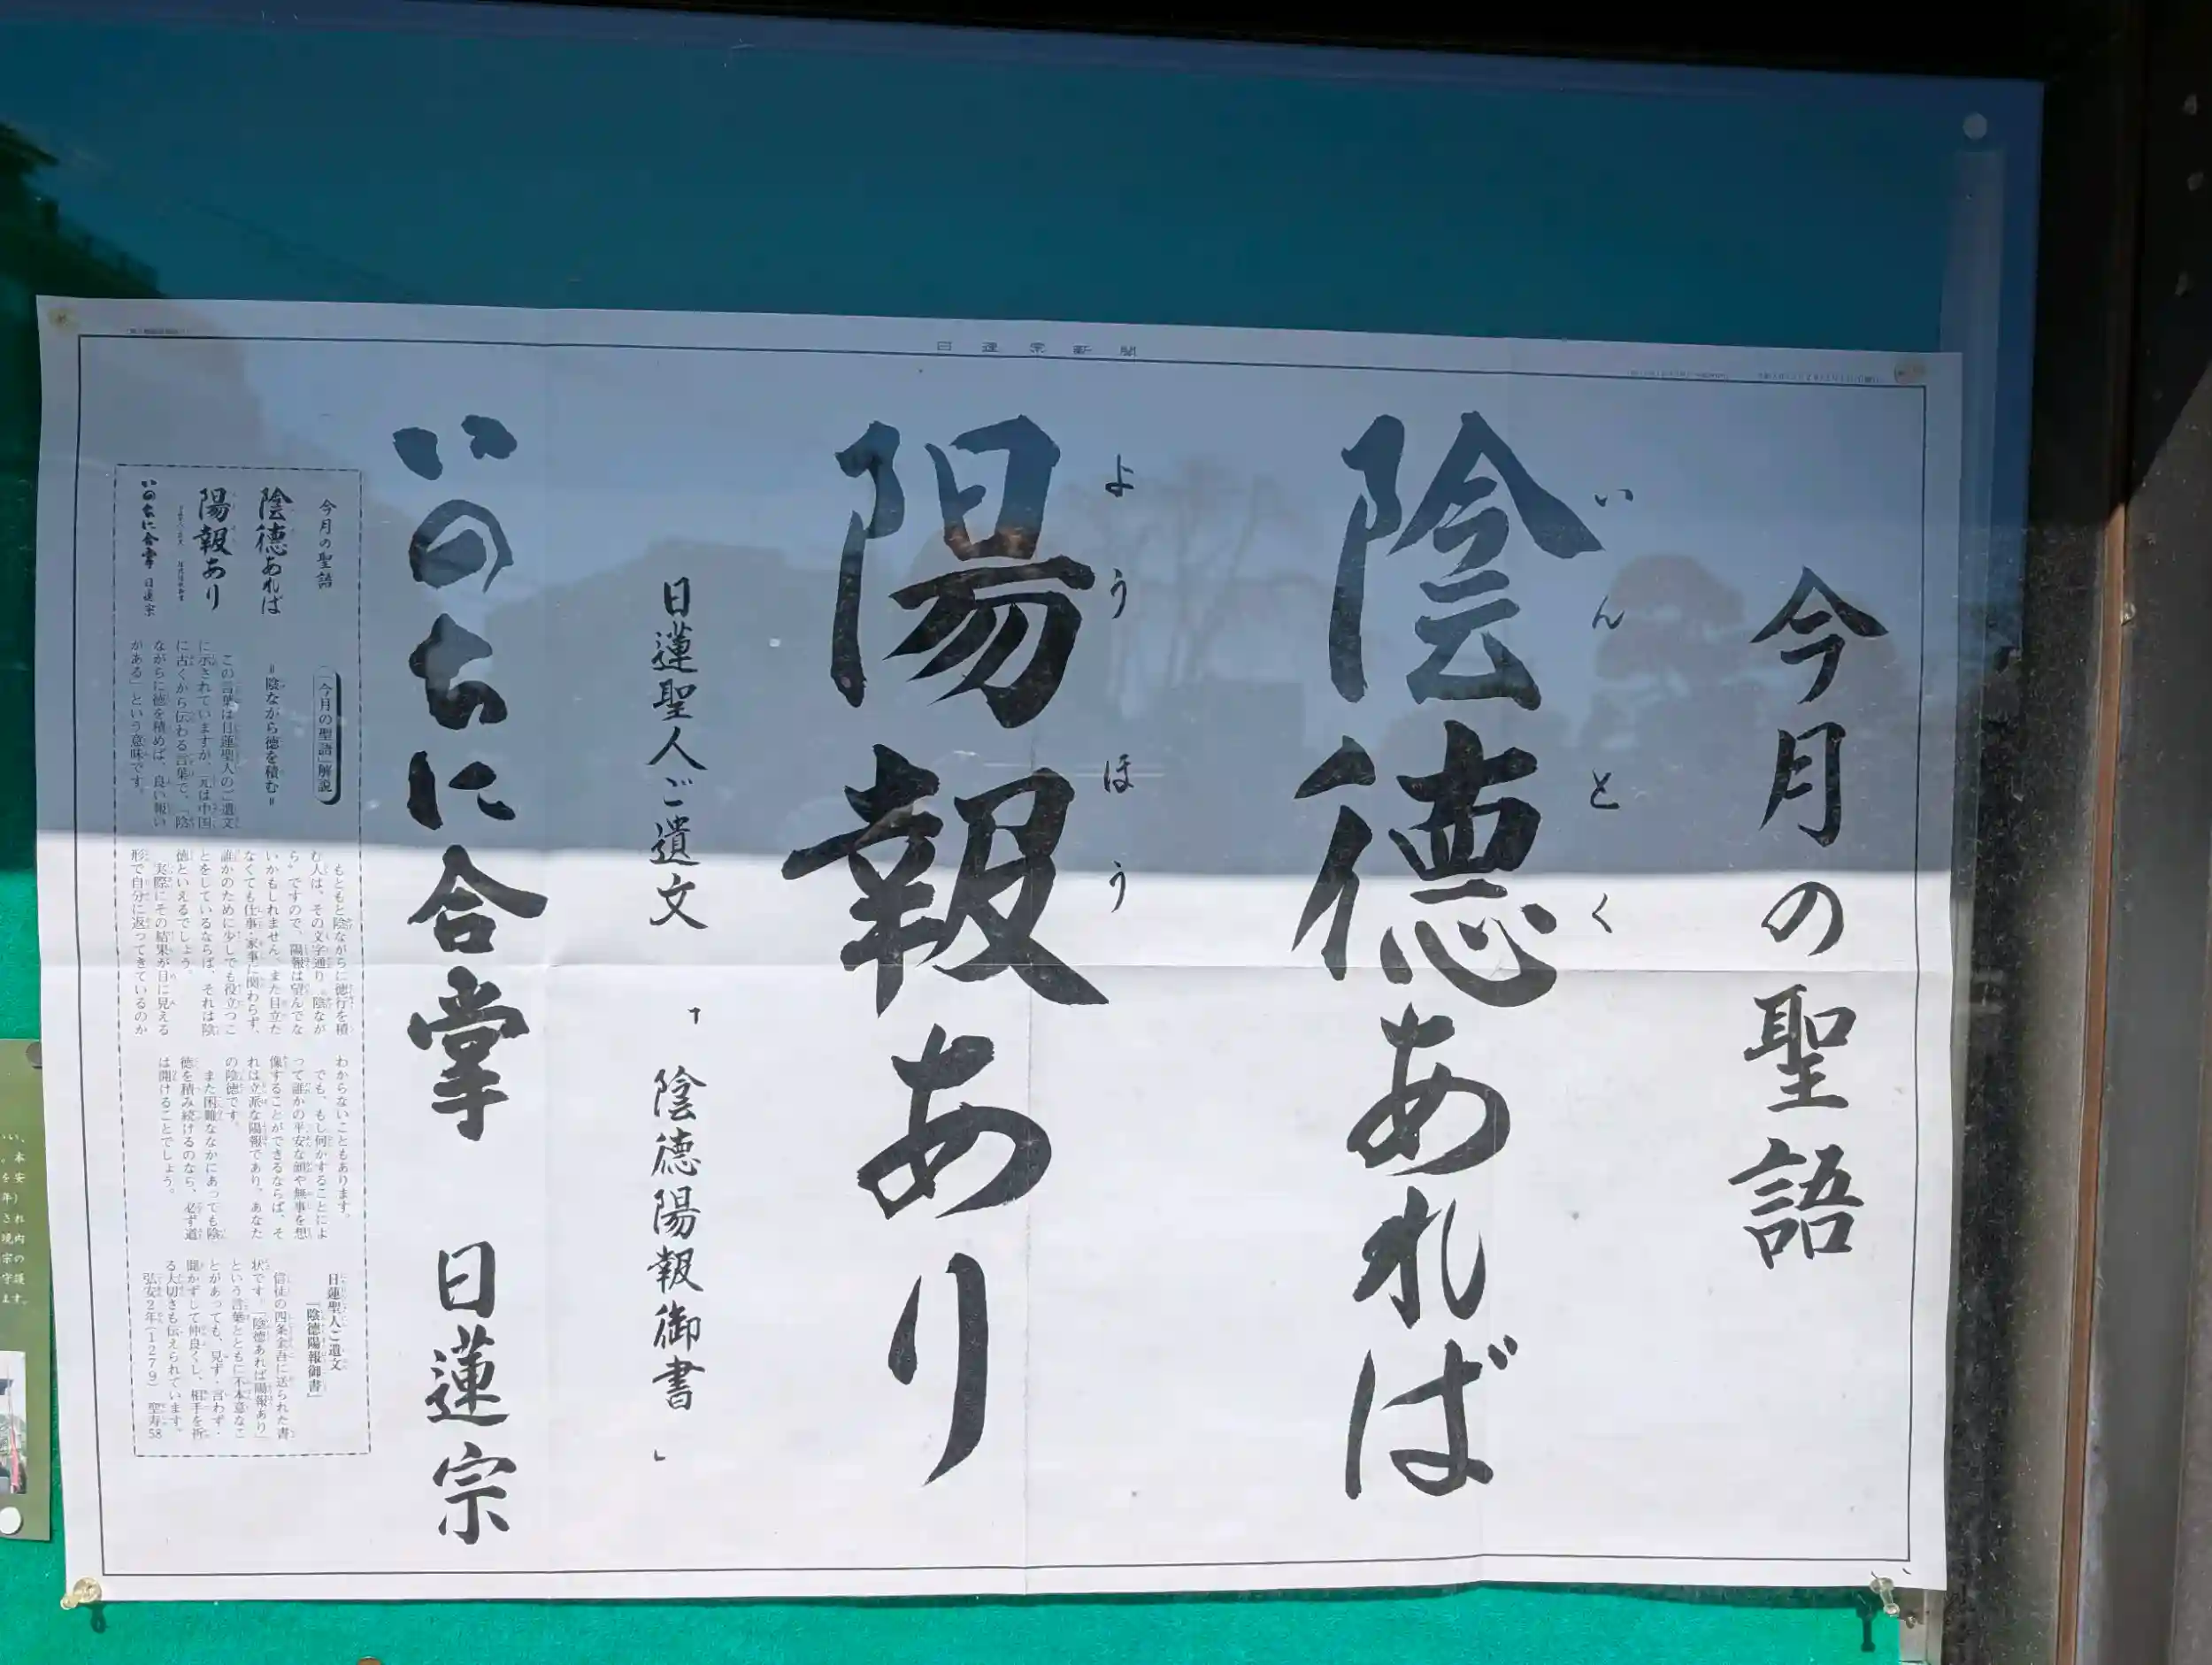 日蓮宗新聞
今月の聖語
いんとく
陰徳あれば
ようほう
陽報あり
日蓮聖人ご遺文 「陰徳陽報御書」
いのちに合掌 日蓮宗
今月の聖語
陰徳あれば
陽報あり
いのちに合掌 日蓮宗
「今月の聖語」解説
=陰ながら徳を積む=
この言葉は日蓮聖人のご遺文
に示されていますが、元は中国
に古くから伝わる言葉で、「陰
ながらに徳を積めば、良い報い
がある」という意味です。
もともと陰ながらに徳行を積
む人は、その文字通り〝陰なが
ら〟ですので、陽報は望んでな
いかもしれません。また目立た
なくても仕事・家事に関わらず、
誰かのために少しでも役立つこ
とをしているならば、それは陰
徳といえるでしょう。
実際にその結果が目に見える
形で自分に返ってきているのか
わからないこともあります。
でも、もし何かすることによ
って誰かの平安な顔や無事を想
像することができるならば、そ
れは立派な陽報であり、あなた
の陰徳です。
また困難ななかにあっても陰
徳を積み続けるのなら、必ず道
は開けることでしょう。
日蓮聖人ご遺文
「陰徳陽報御書」
信徒の四条金吾に送られた書
状です。「陰徳あれば陽報あり」
という言葉とともに不本意なこ
とがあっても、見ず・言わず・
聞かずして仲良くし、相手を祈
る大切さも伝えられています。
弘安2年（1279） 聖寿58